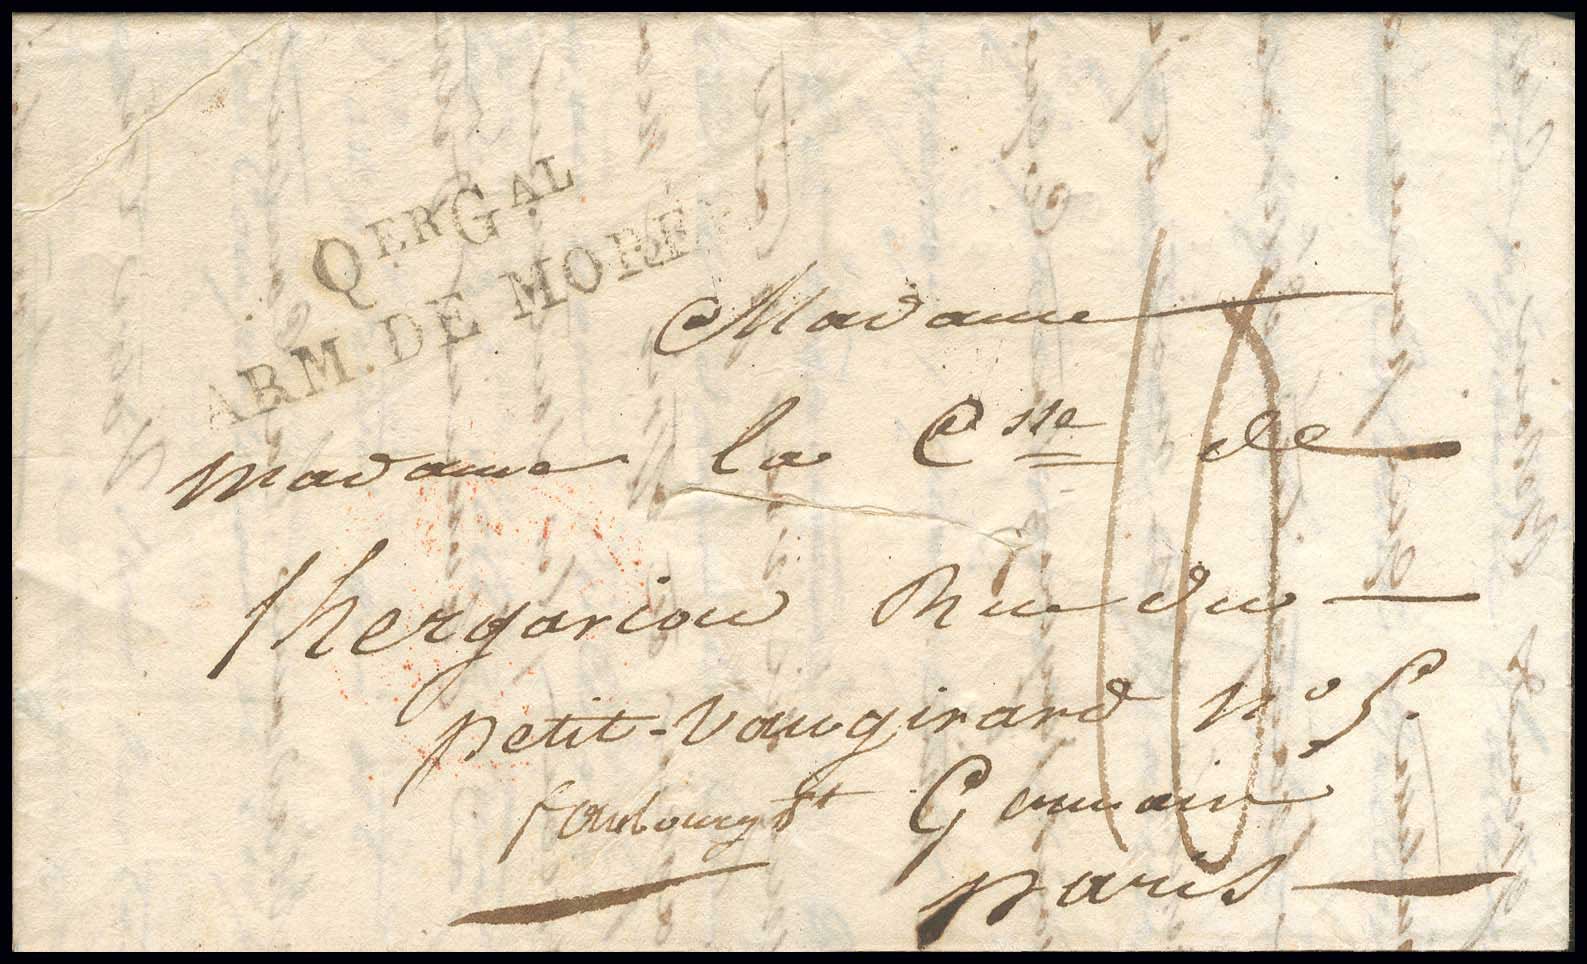 QERGAL
ARM. DE MORÉE
Madame
madame la Csse de
Khergariou Rue du
petit-Vaugirard no 5.
faubourg St Germain
paris
10